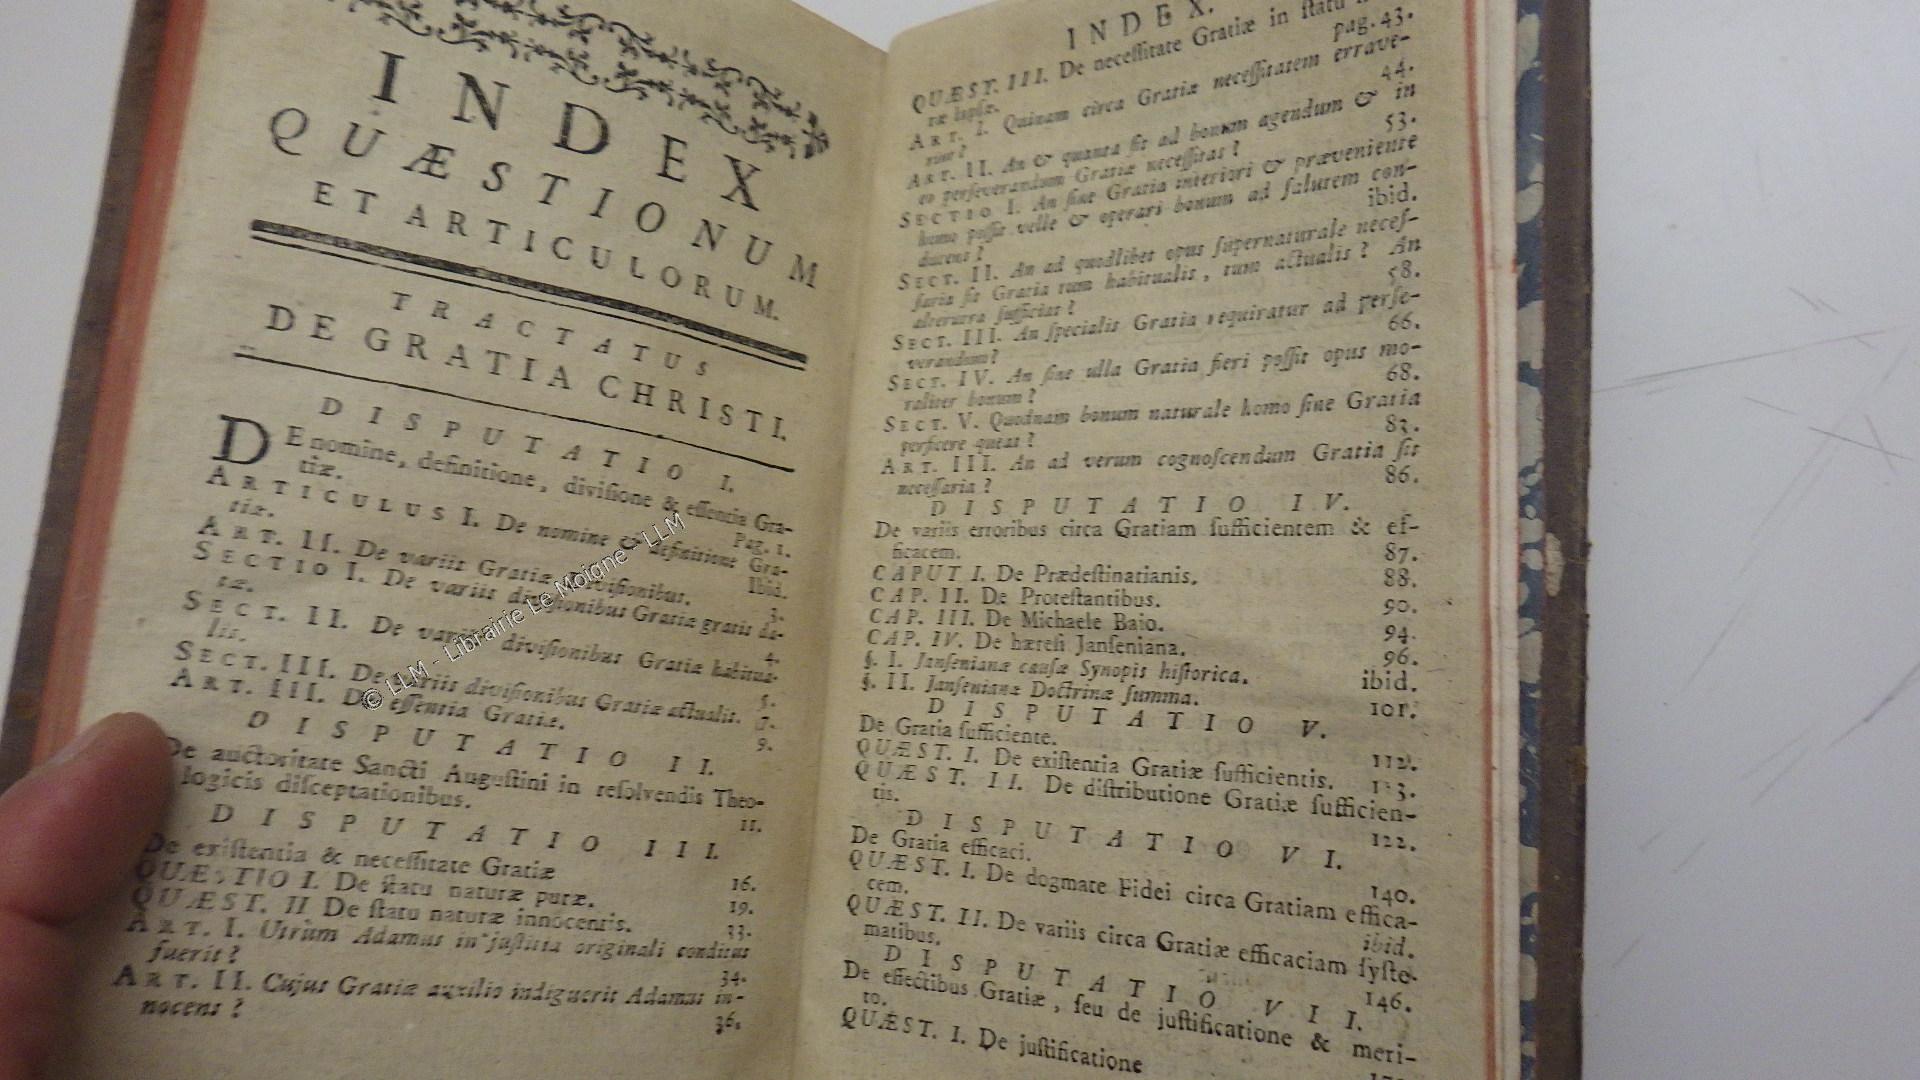 INDEX
QUÆSTIONUM
ET ARTICULORUM.
TRACTATUS
DE GRATIA CHRISTI.
DISPUTATIO I.
DE nomine, definitione, divisione & essentia Gra-
tiæ. Pag. 1.
ARTICULUS I. De nomine & definitione Gra-
tiæ. Ibid.
ART. II. De variis Gratiæ divisionibus. 3.
SECTIO I. De variis divisionibus Gratiæ gratis da-
tæ. 4.
SECT. II. De variis divisionibus Gratiæ habitua-
lis. 5.
SECT. III. De variis divisionibus Gratiæ actualis. 7.
ART. III. De essentia Gratiæ. 9.
DISPUTATIO II.
De auctoritate Sancti Augustini in resolvendis Theo-
logicis disceptationibus. 11.
DISPUTATIO III.
De existentia & necessitate Gratiæ 16.
QUÆSTIO I. De statu naturæ puræ. 19.
QUÆST. II De statu naturæ innocentis. 33.
ART. I. Utrùm Adamus in justitia originali conditus
fuerit? 34.
ART. II. Cujus Gratiæ auxilio indiguerit Adamus in-
nocens? 36.
© LLM - Librairie Le Moigne - LLM
INDEX.
QUÆST. III. De necessitate Gratiæ in statu
ræ lapsæ. pag. 43.
ART. I. Quinam circa Gratiæ necessitatem errave-
rint? 44.
ART. II. An & quanta sit ad bonum agendum & in
eo perseverandum Gratiæ necessitas? 53.
SECTIO I. An sine Gratia interiori & præveniente
homo possit velle & operari bonum ad salutem con-
ducens? ibid.
SECT. II. An ad quodlibet opus supernaturale neces-
saria sit Gratia tum habitualis, tum actualis? An
alterutra sufficiat? 58.
SECT. III. An specialis Gratia requiratur ad perse-
verandum? 66.
SECT. IV. An sine ulla Gratia fieri possit opus mo-
raliter bonum? 68.
SECT. V. Quodnam bonum naturale homo sine Gratia
perficere queat? 83.
ART. III. An ad verum cognoscendum Gratia sit
necessaria? 86.
DISPUTATIO IV.
De variis erroribus circa Gratiam sufficientem & ef-
ficacem. 87.
CAPUT I. De Prædestinatianis. 88.
CAP. II. De Protestantibus. 90.
CAP. III. De Michaele Baio. 94.
CAP. IV. De hæresi Janseniana. 96.
§. I. Jansenianæ causæ Synopis historica. ibid.
§. II. Jansenianæ Doctrinæ summa. 101.
DISPUTATIO V.
De Gratia sufficiente. 112.
QUÆST. I. De existentia Gratiæ sufficientis. 113.
QUÆST. II. De distributione Gratiæ sufficien-
tis. 122.
DISPUTATIO VI.
De Gratia efficaci. 140.
QUÆST. I. De dogmate Fidei circa Gratiam effica-
cem. ibid.
QUÆST. II. De variis circa Gratiæ efficaciam syste-
matibus. 146.
DISPUTATIO VII.
De effectibus Gratiæ, seu de justificatione & meri-
to.
QUÆST. I. De justificatione